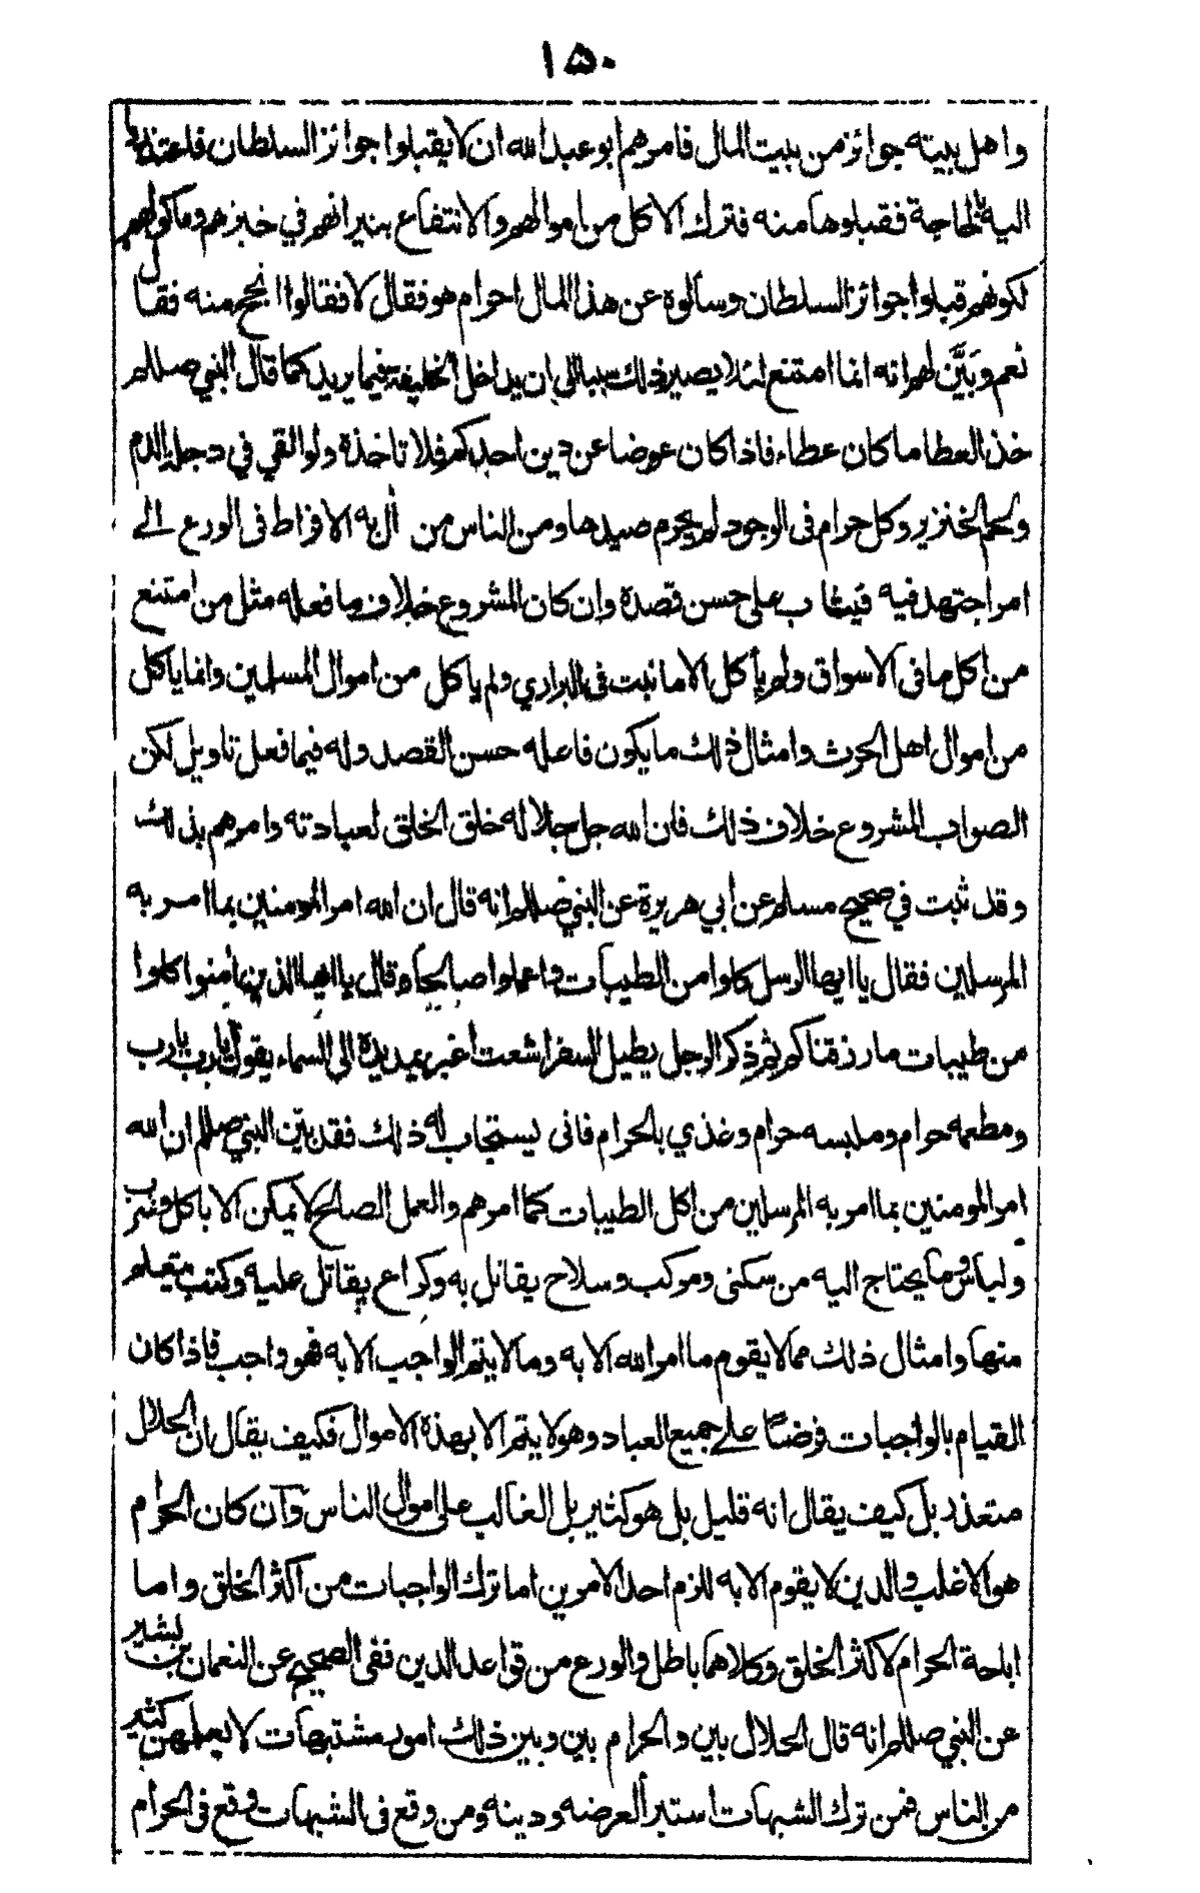 ١٥٠
واهل بيته جوائز من بيت المال فامرهم ابو عبد الله ان لا يقبلوا جوائز السلطان فاعتذروا
اليه بالحاجة فقبلوها منه فترك الاكل من اموالهم والانتفاع بنيرانهم في خبزهم وماكولهم
لكونهم قبلوا جوائز السلطان وسألوه عن هذا المال احرام هو فقال لا فقالوا انحج منه فقال
نعم وبَيَّن لهم انه انما امتنع لئلا يصير ذلك سببا الى ان يداخل الخليفة فيما يريد كما قال النبي صللم
خذ العطا ما كان عطاء فاذا كان عوضا عن دين احدكم فلا تاخذه ولو القي في دجلة الدم
ولحم الخنزير وكل حرام فى الوجود لم يحرم صيدها ومن الناس من أل به الافراط فى الورع الى
امر اجتهد فيه فيثاب على حسن قصده وان كان المشروع خلاف ما فعله مثل من امتنع
من اكل ما فى الاسواق ولم يأكل الا ما نبت فى البراري ولم ياكل من اموال المسلمين وانما ياكل
من اموال اهل الحرث وامثال ذلك ما يكون فاعله حسن القصد وله فيما فعل تاويل لكن
الصواب المشروع خلاف ذلك فان الله جل جلاله خلق الخلق لعبادته وامرهم بذلك
وقد ثبت في صحيح مسلم عن أبي هريرة عن النبي صللم انه قال ان الله امر المومنين بما امر به
المرسلين فقال يا ايها الرسل كلوا من الطيبات واعملوا صالحا وقال يا ايها الذين امنوا كلوا
من طيبات ما رزقناكم ثم ذكر الرجل يطيل السفر اشعث أغبر يمد يده الى السماء يقول يا رب يا رب
ومطعمه حرام وملبسه حرام وغذي بالحرام فانى يستجاب له ذلك فقد بيّن النبي صللم ان الله
امر المومنين بما امر به المرسلين من اكل الطيبات كما امرهم والعمل الصالح لا يمكن الا باكل وشرب
ولباس وما يحتاج اليه من سكنى ومركب وسلاح يقاتل به وكراع يقاتل عليه وكتب يتعلم
منها وامثال ذلك مما لا يقوم ما امر الله الا به وما لا يتم الواجب الا به فهو واجب فاذا كان
القيام بالواجبات فرضًا على جميع العباد وهو لا يتم الا بهذه الاموال فكيف يقال ان الحلال
متعذر بل كيف يقال انه قليل بل هو كثير بل الغالب على اموال الناس وآن كان الحرام
هو الاغلب والدين لا يقوم الا به للزم احد الامرين اما ترك الواجبات من اكثر الخلق واما
اباحة الحرام لاكثر الخلق وكلاهما باطل والورع من قواعد الدين ففى الصحيح عن النعمان بن بشير
عن النبي صللم انه قال الحلال بين والحرام بين وبين ذلك امور مشتبهات لا يعلمهن كثير
من الناس فمن ترك الشبهات استبرأ لعرضه ودينه ومن وقع فى الشبهات وقع فى الحرام